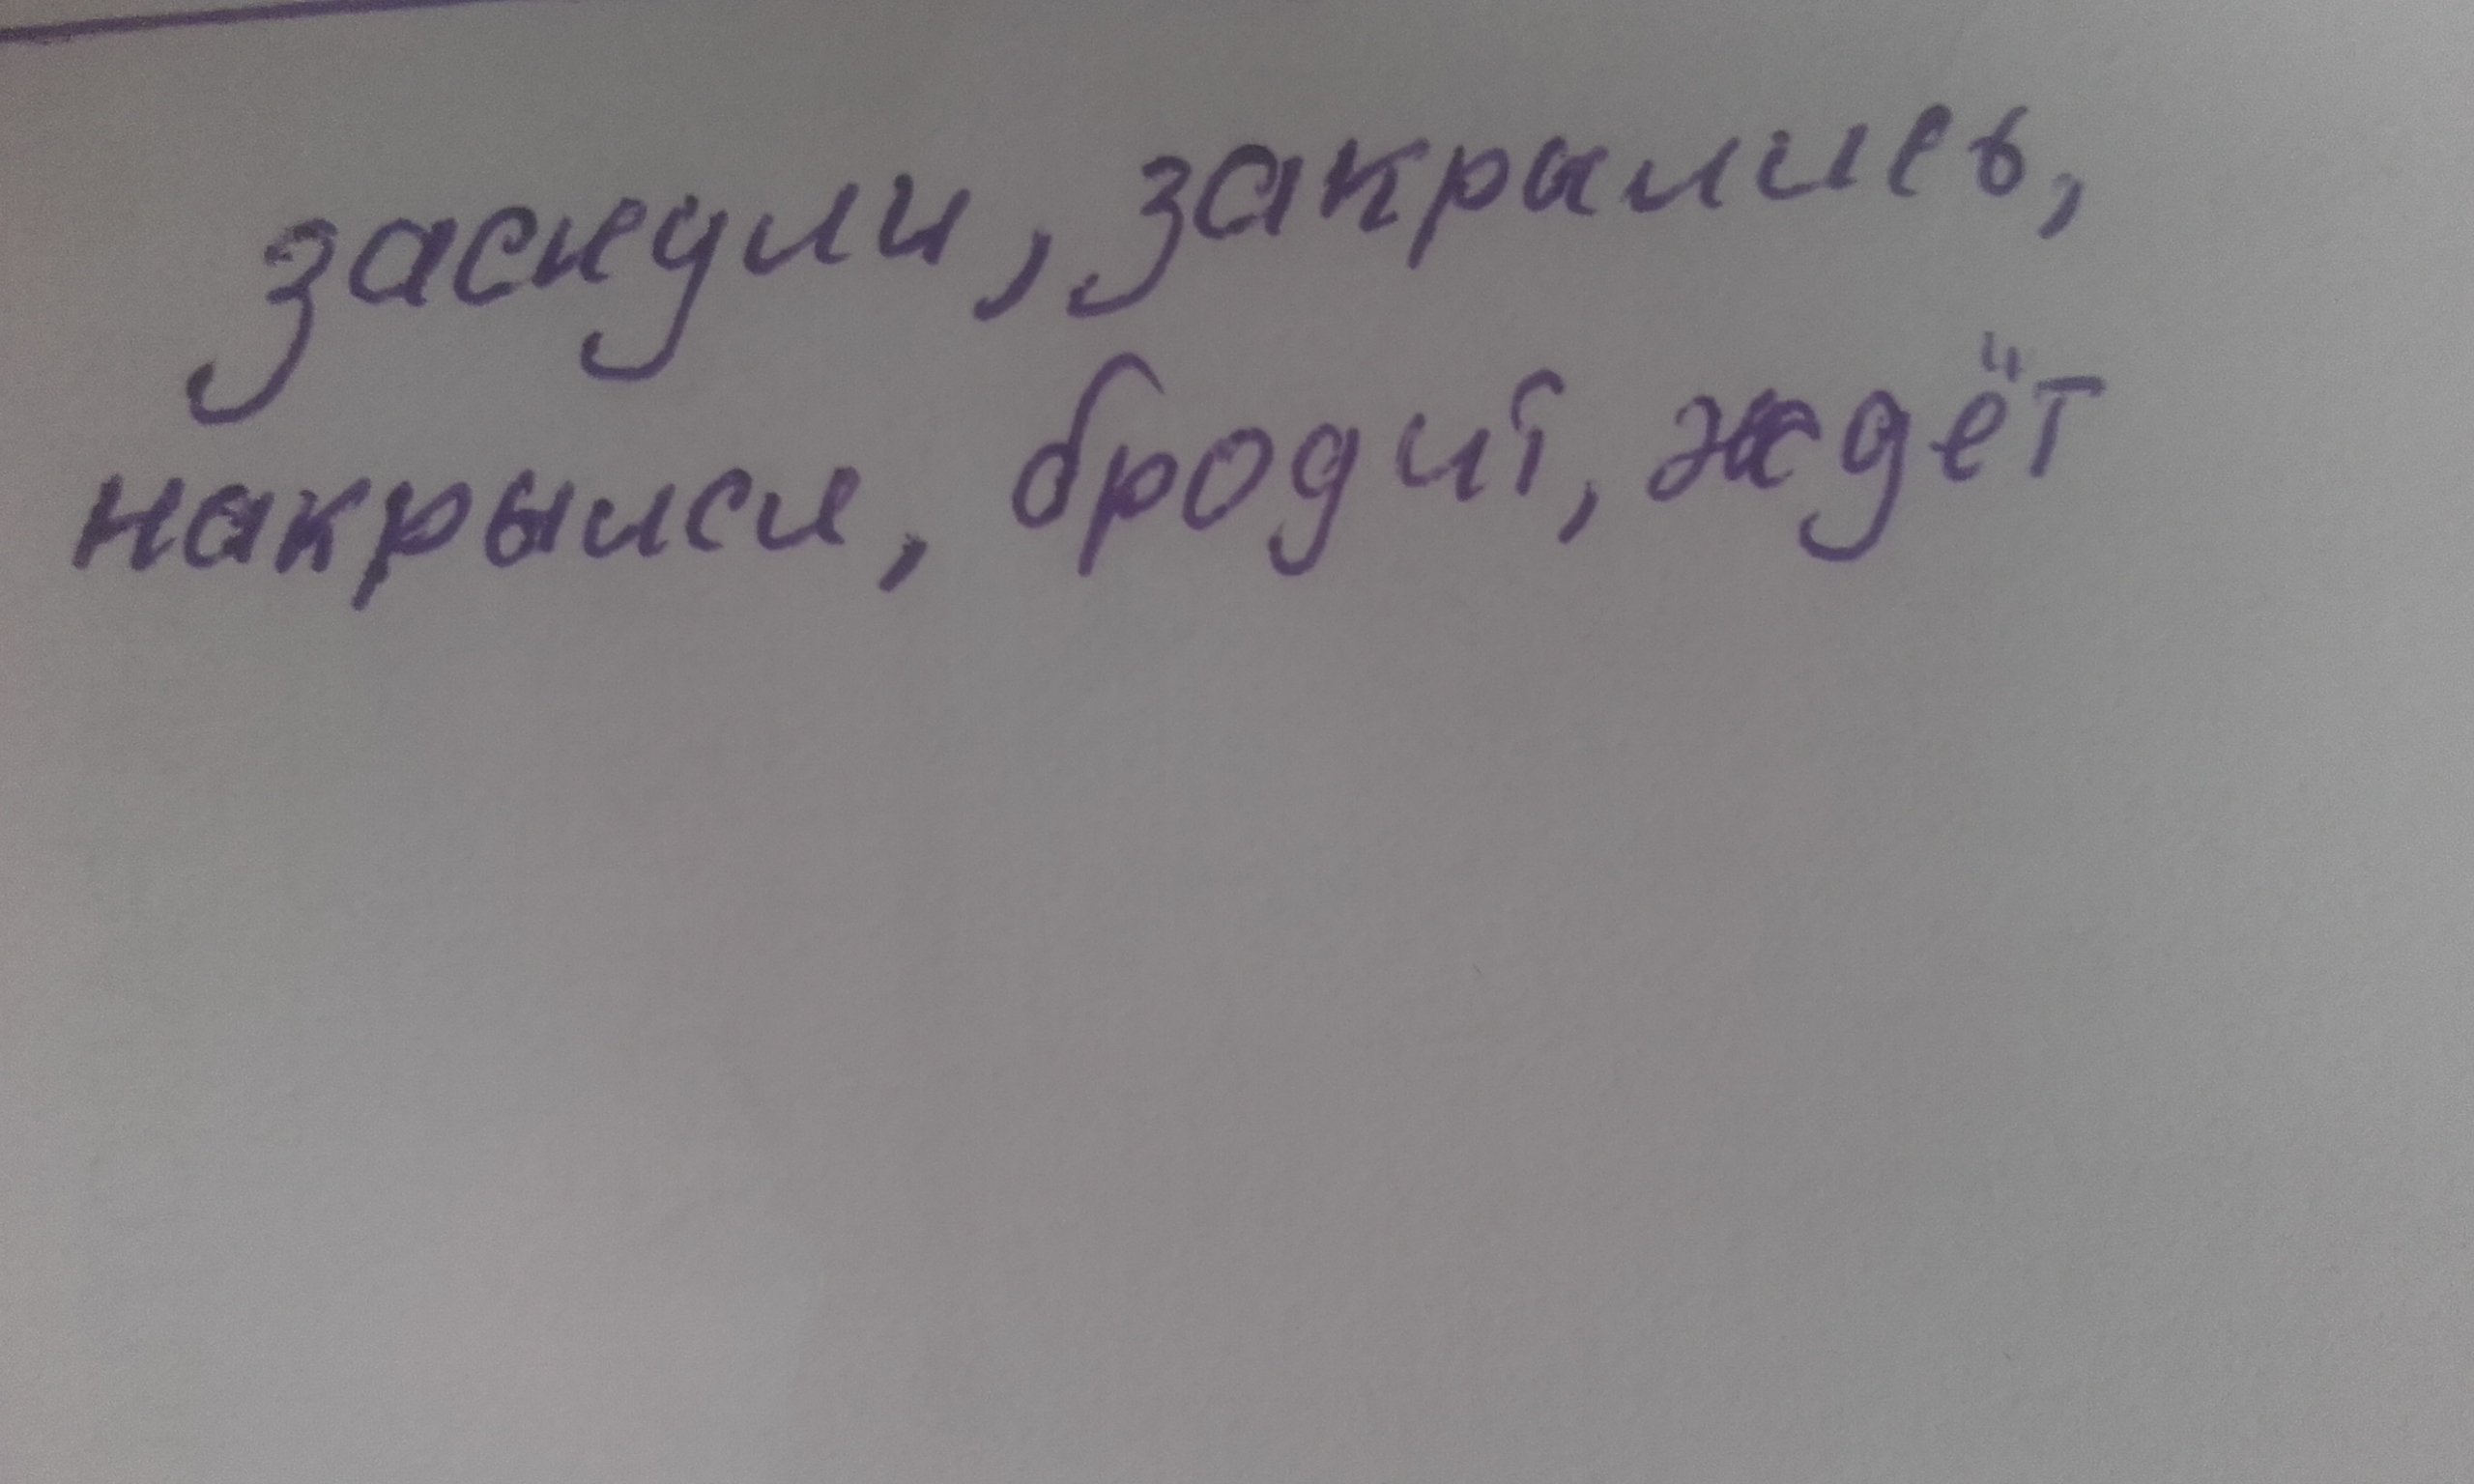 заснули, закрылись,
накрылся, бродит, ждёт